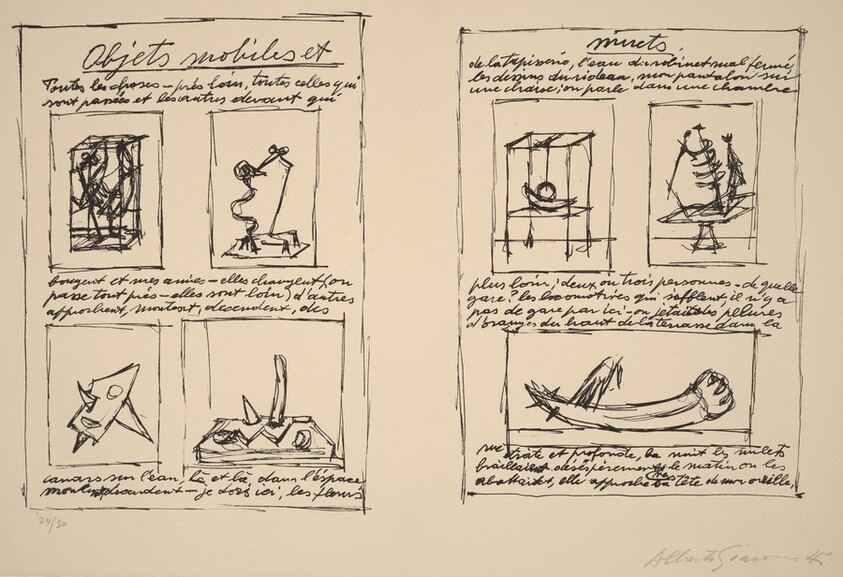 Objets mobiles et
Toutes les choses – près loin, toutes celles qui
sont passées et les autres devant qui
bougent et mes amies – elles changent (on
passe tout près – elles sont loin) d'autres
approchent, montent, descendent, des
canars sur l'eau, là et là, dans l'espace
montent descendent – je dors ici, les fleurs
24/30
muets.
de la tapisserie, l'eau du robinet mal fermé,
les dessins du rideau, mon pantalon sur
une chaise, on parle dans une chambre
plus loin; deux ou trois personnes – de quelle
gare? les locomotives qui sifflent, il n'y a
pas de gare par ici – on jetait des pelures
d'oranges du haut de la terrasse dans la
rue étroite et profonde, la nuit les mulets
braillaient désespérément, le matin on les
abattait, elle approche sa tête de mon oreille,
Alberto Giacometti